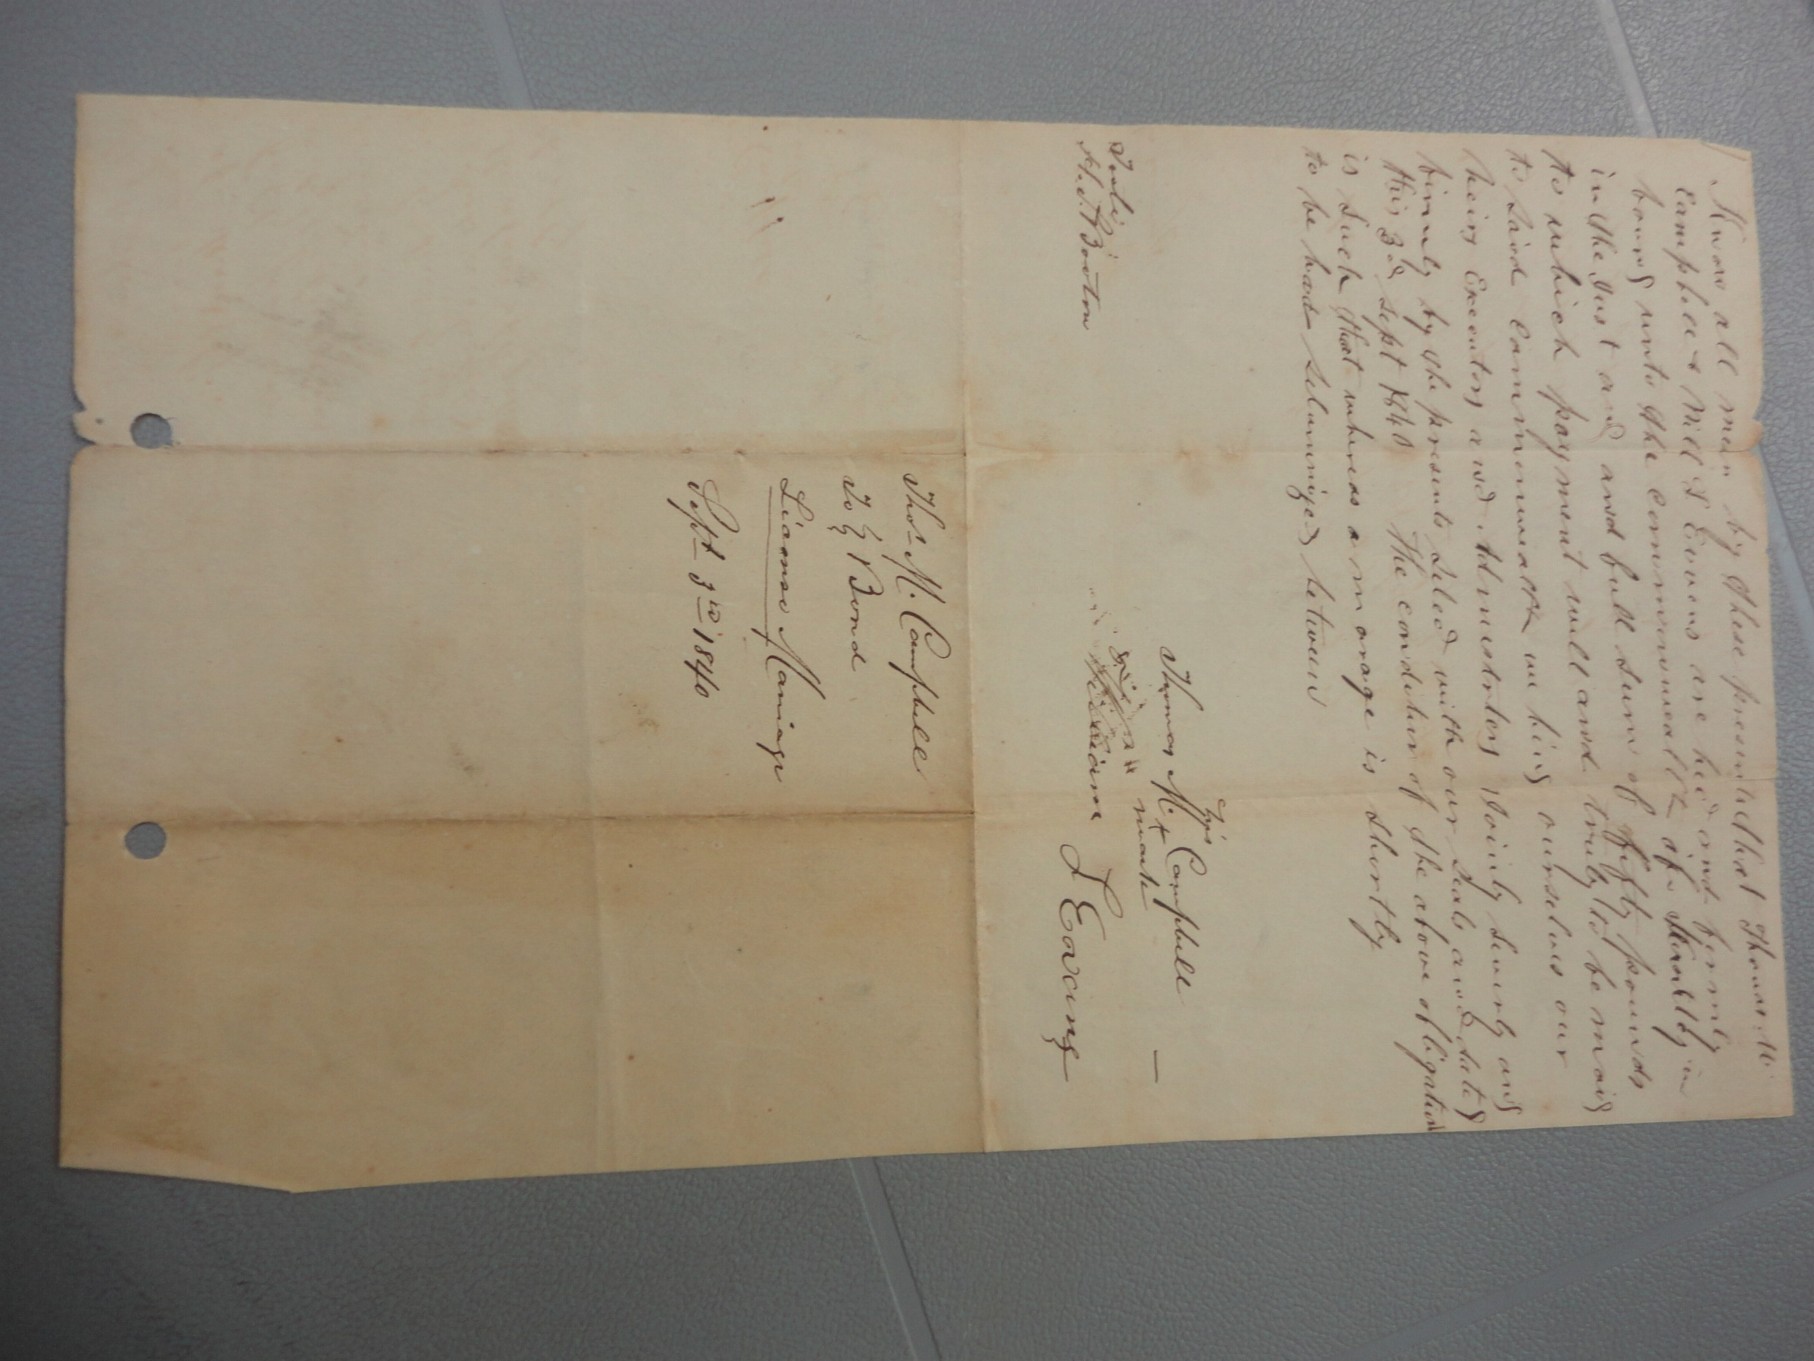 Know all men by these presents that Thomas M
Campbell & Will S Ewing are held and firmly
bound unto the Commonwealth of Kentucky in
in the Just and and full sum of fifty pounds
to which payment will and truly to be maid
to said Commonwealth we bind ourselves our
heirs Executors and Admestrators Jointly Severly and
firmly by the presents Seled with our Seals and dated
this 3d Sept 1840 The condition of the above obligation
is Such that whereas a marage is Shortly
to be had Solumnized between
his
Thomas M. x Campbell
mark
Teste
H. T. Barton
William L Ewing
Thos M. Campbell
To } Bond
License Marriage
Sept 3rd 1840